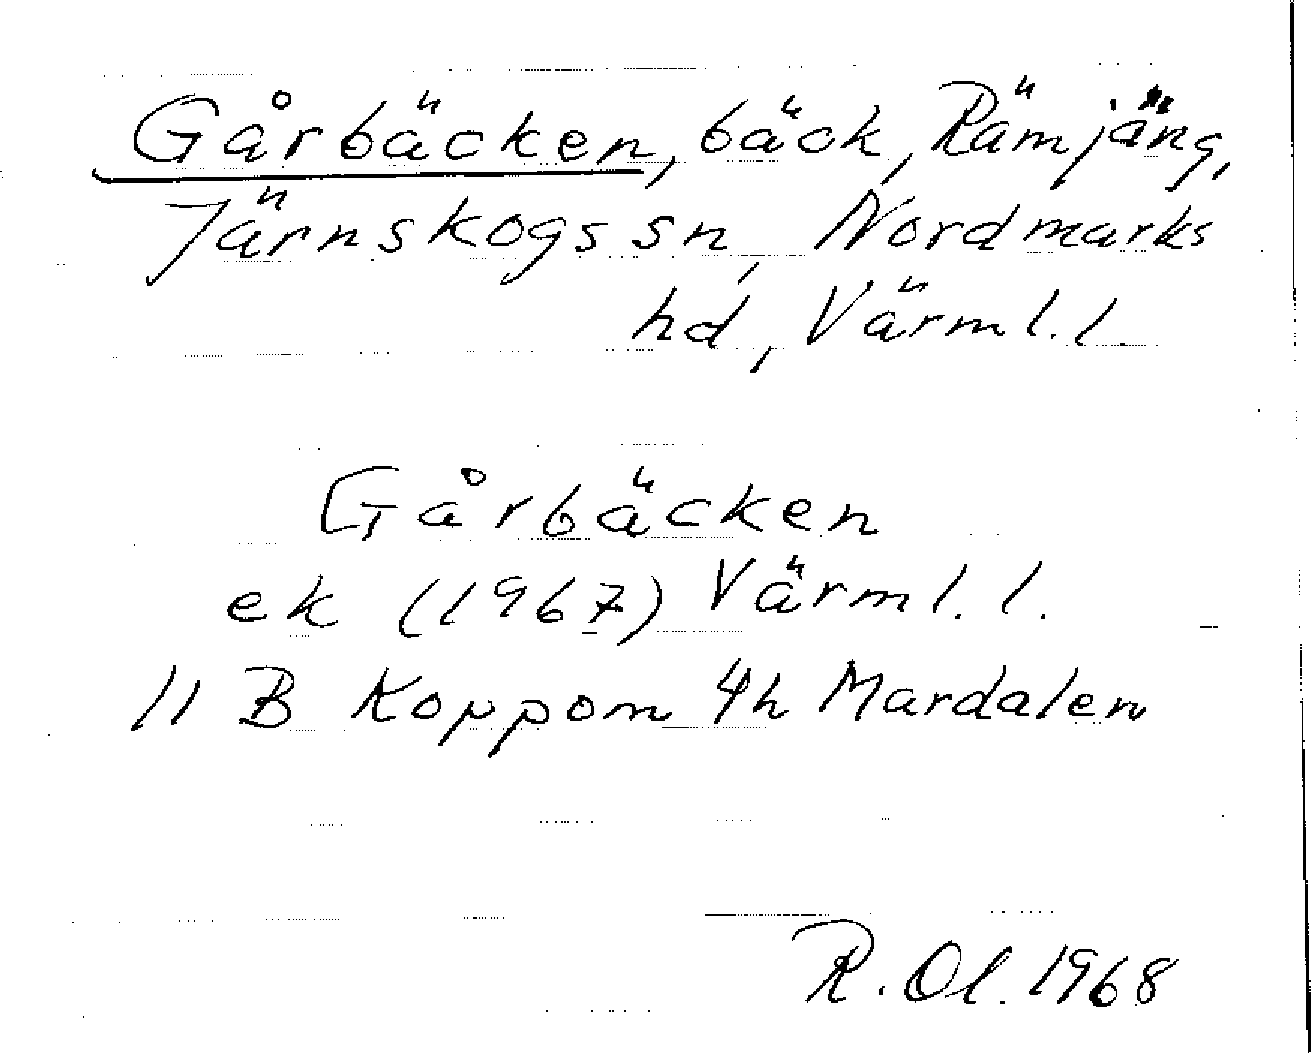 Gårbäcken, bäck, Rämjäng,
Järnskogs sn, Nordmarks
hd, Värml. l.
Gårbäcken
ek (1967) Värml. l.
11 B Koppom 4h Mardalen
R. Ol. 1968